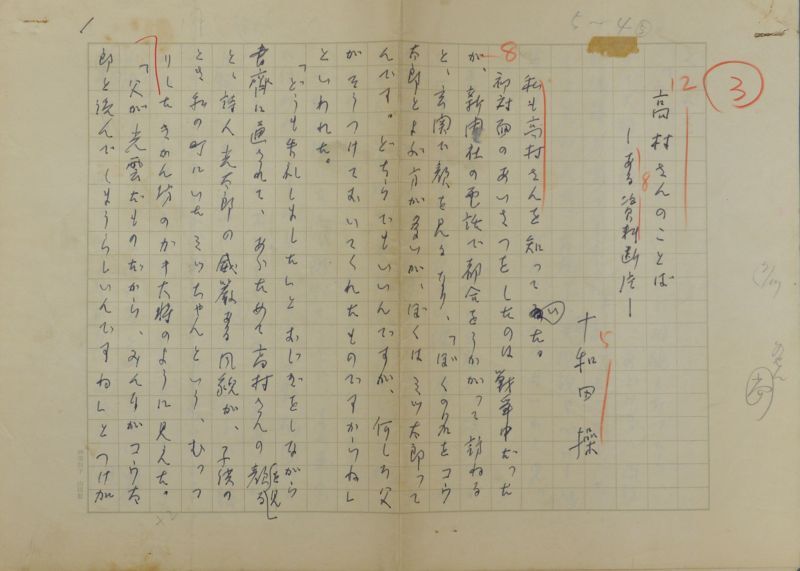 ③
12
高村さんのことば
8
―ある資料断片―
5
十和田操
私も高村さんを知っていた。
8
初対面のあいさつをしたのは戦争中だった
が、新聞社の電話で都合をうかがって訪ねる
と、玄関で顔を見るなり、「ぼくの名をコウ
太郎とよぶ方が多いが、ぼくはミツ太郎って
んです。どちらでもいいんですが、何しろ父
がそうつけておいてくれたものですからね」
といわれた。
「どうも失礼しました」とおじぎをしながら
書斎に通されて、あらためて高村さんの顔を
と、詩人光太郎の威厳ある風貌が、子供の
とき私の町にいたミッちゃんという、むっつ
りしたきかん坊のガキ大将のように見えた。
「父が光雲なものだから、みんながコウ太
郎と読んでしまうらしいんですね」とつけ加
5〜4